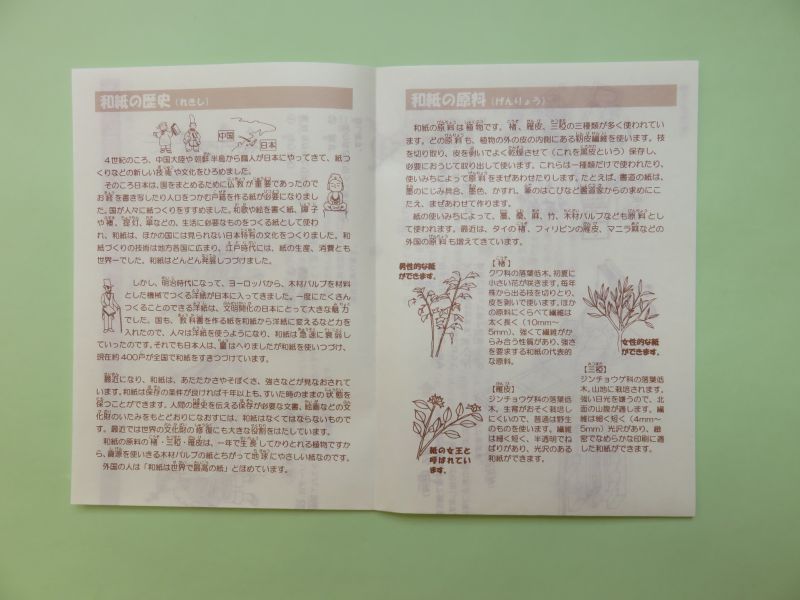 和紙の歴史（れきし）
中国
日本
4世紀のころ、中国大陸や朝鮮半島から職人が日本にやってきて、紙つ
くりなどの新しい技術や文化をひろめました。
そのころ日本は、国をまとめるために仏教が重要であったので
お経を書き写したり人口をつかむ戸籍を作る紙が必要になりまし
た。国が人々に紙つくりをすすめました。和歌や絵を書く紙、障子
や襖、提灯、傘などの、生活に必要なものをつくる紙として使わ
れ、和紙は、ほかの国には見られない日本特有の文化をつくりました。和
紙づくりの技術は地方各国に広まり、江戸時代には、紙の生産、消費とも
世界一でした。和紙はどんどん発展しつづけました。
しかし、明治時代になって、ヨーロッパから、木材パルプを材料
とした機械でつくる洋紙が日本に入ってきました。一度にたくさん
つくることのできる洋紙は、文明開化の日本にとって大きな魅力
でした。国も、教科書を作る紙を和紙から洋紙に変えるなど力を
入れたので、人々は洋紙を使うようになり、和紙は急速に衰弱し
ていったのです。それでも日本人は、量はへりましたが和紙を使いつづけ、
現在約400戸が全国で和紙をすきつづけています。
最近になり、和紙は、あたたかさやそぼくさ、強さなどが見なおされて
います。和紙は保存の条件が良ければ千年以上も、すいた時のままの状態を
保つことができます。人間の歴史を伝える保存が必要な文書、絵画などの文
化財のいたみをもとどおりになおすには、和紙はなくてはならないもので
す。最近では世界の文化財の修復にも大きな役割をはたしています。
和紙の原料の楮・三椏・雁皮は、一年で生長してかりとれる植物ですか
ら、資源を使いきる木材パルプの紙とちがって地球にやさしい紙なのです。
外国の人は「和紙は世界で最高の紙」とほめています。
和紙の原料（げんりょう）
和紙の原料は植物です。楮、雁皮、三椏の三種類が多く使われてい
ます。どの原料も、植物の外の皮の内側にある靭皮繊維を使います。枝
を切り取り、皮を剥いでよく乾燥させて（これを黒皮という）保存し、
必要におうじて取り出して使います。これらは一種類だけで使われたり、
使いみちによって原料をまぜあわせたりします。たとえば、書道の紙は、
墨のにじみ具合、墨色、かすれ、筆のはこびなど書道家からの求めにこ
たえ、まぜあわせて作ります。
紙の使いみちによって、藁、桑、麻、竹、木材パルプなども原料とし
て使われます。最近は、タイの楮、フィリピンの雁皮、マニラ麻などの
外国の原料も増えてきています。
男性的な紙
ができます。
【楮】
クワ科の落葉低木、初夏に
小さい花が咲きます。毎年
株から出る枝を切りとり、
皮を剥いで使います。ほか
の原料にくらべて繊維は
太く長く（10mm～
5mm）、強くて繊維がか
らみ合う性質があり、強さ
を要する和紙の代表的
な原料。
女性的な紙
ができます。
【三椏】
ジンチョウゲ科の落葉低
木、山地に栽培されます。
強い日光を嫌うので、北
面の山腹が適します。繊
維は細く短く（4mm～
5mm）光沢があり、緻
密でなめらかな印刷に適
した和紙ができます。
紙の女王と
呼ばれてい
ます。
【雁皮】
ジンチョウゲ科の落葉低
木、生育がおそく栽培し
にくいので、普通は野生
のものを使います。繊維
は細く短く、半透明でね
ばりがあり、光沢のある
和紙ができます。